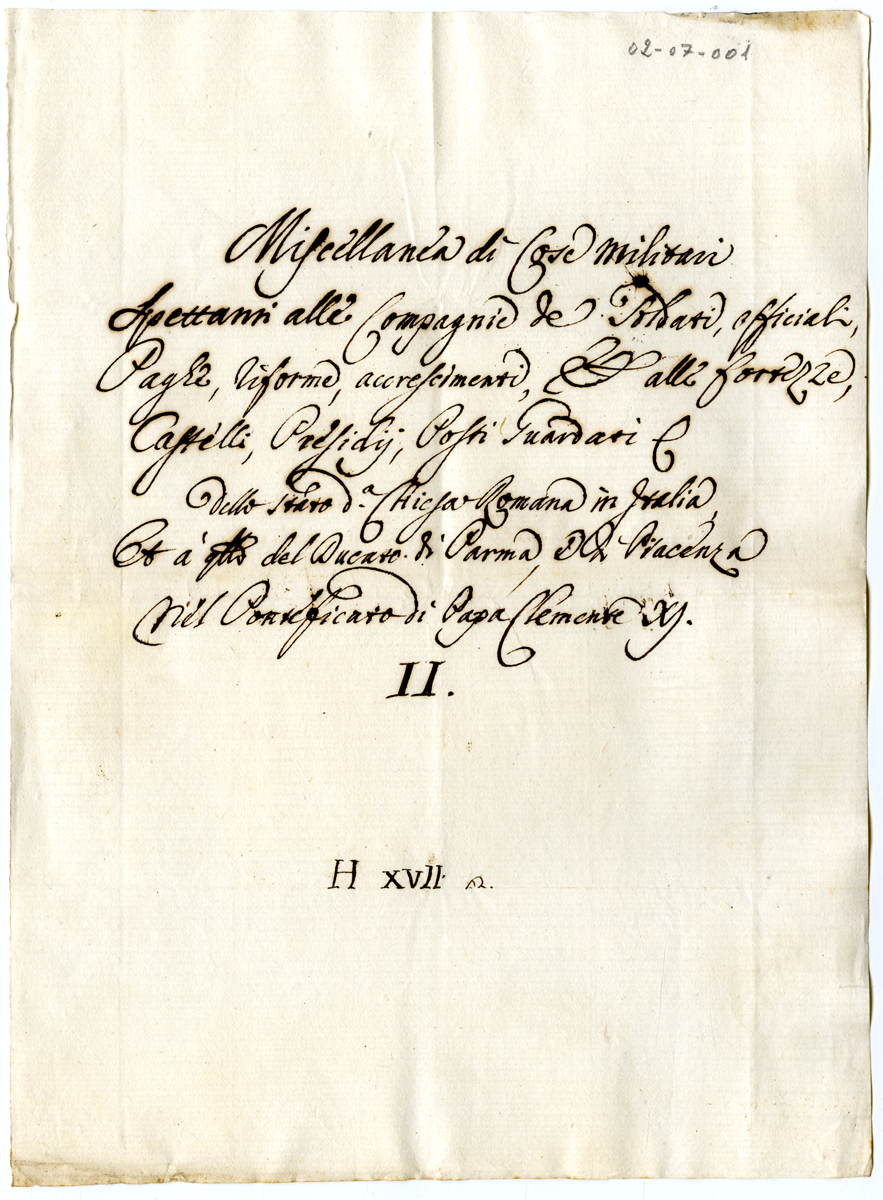 02-07-001
Miscellanea di Cose Militari
Spettanti alle Compagnie de Soldati, officiali,
Paghe, riforme, accrescimenti, et alle fortezze,
Castelli, Presidij, Posti Guardati
dello stato d.ª Chiesa Romana in Italia,
Et à qllo del Ducato di Parma, e di Piacenza
Nel Pontificato di Papa Clemente XJ.
II.
H XVII 2.